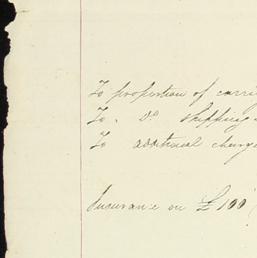 To proportion of carri
To . Do shipping
To additional charge
Insurance on £100